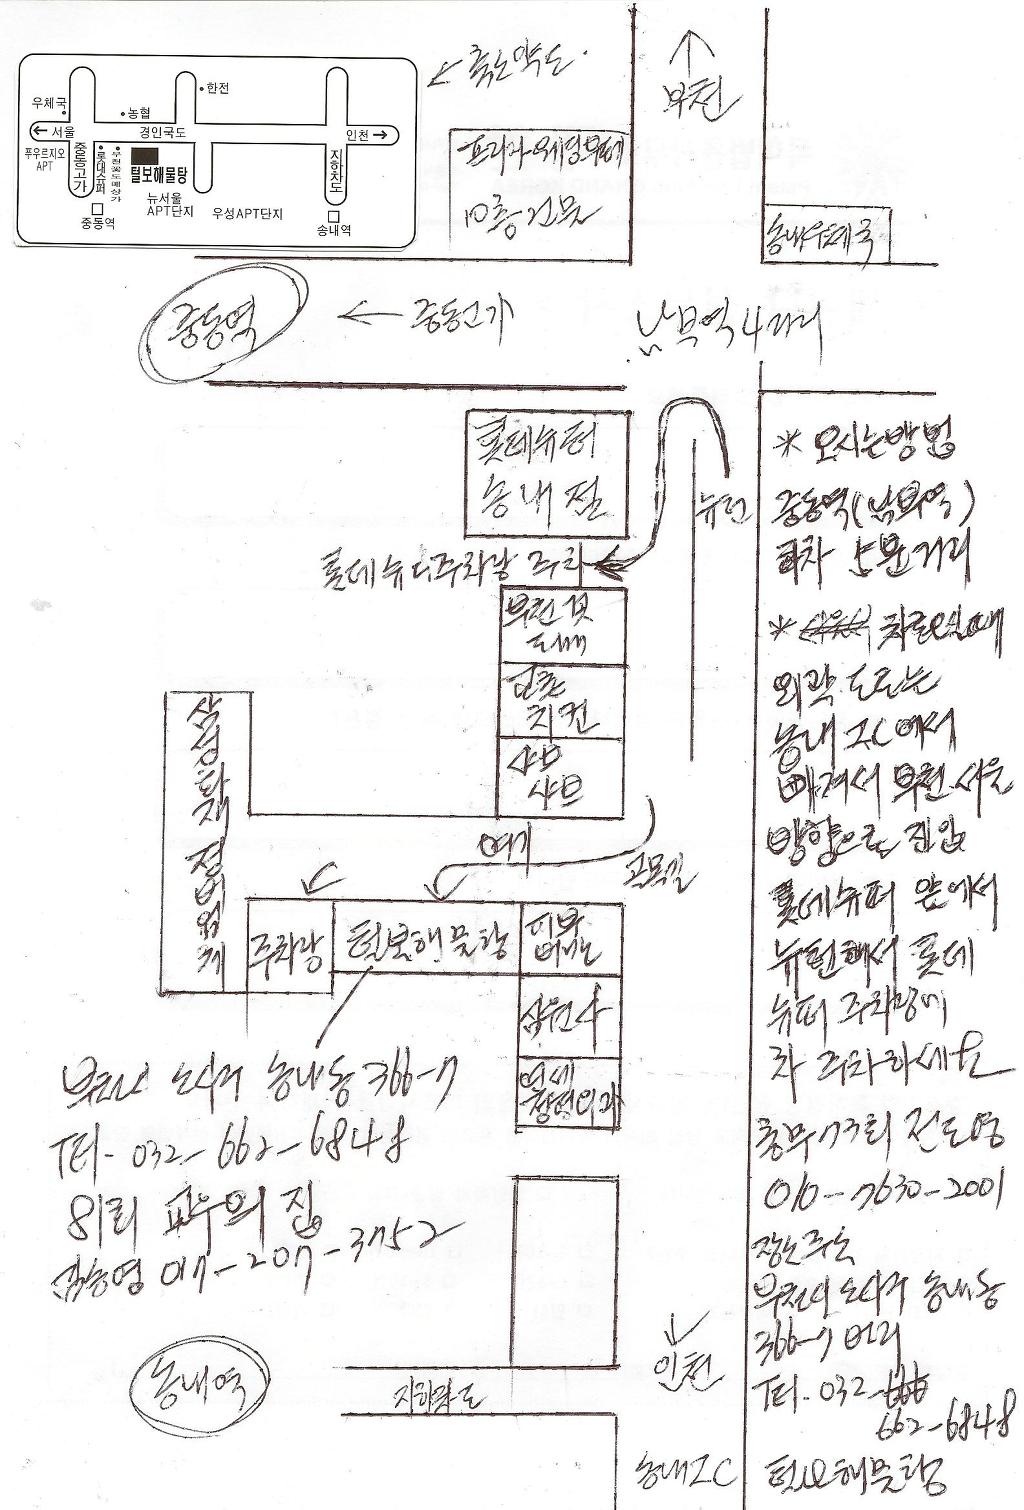 우체국
•한전
•농협
← 서울
경인국도
인천 →
푸우르지오
APT
중동고가
롯데슈퍼
털보해물탕
지하차도
뉴서울
APT단지
우성APT단지
중동역
송내역
← 축소약도
↑
부천
프라자예식장부페
10층건물
송내우체국
중동역
← 중동고가
남부역 4거리
롯데슈퍼
송내점
유턴
롯데슈퍼주차장 주차
부천꽃
도매
치킨
샤브
샤브
삼성화재 정비업체
여기
골목길
주차장
털보해물탕
피부
비뇨
삼원사
연세
항외과
부천시 소사구 송내동 366-7
Tel. 032-662-6848
81회 교우의 집
김송영 017-207-3752
송내역
지하차도
인천
송내IC
* 오시는방법
중동역(남부역)
하차 5분거리
* 차로오실때
외곽도로는
송내 IC에서
빠져서 부천 서울
방향으로 진입
롯데슈퍼 앞에서
유턴해서 롯데
슈퍼 주차장에
차 주차하세요
총무 73회 전도영
010-7630-2001
장소주소
부천시 소사구 송내동
366-7번지
Tel. 032-666
662-6848
털보해물탕